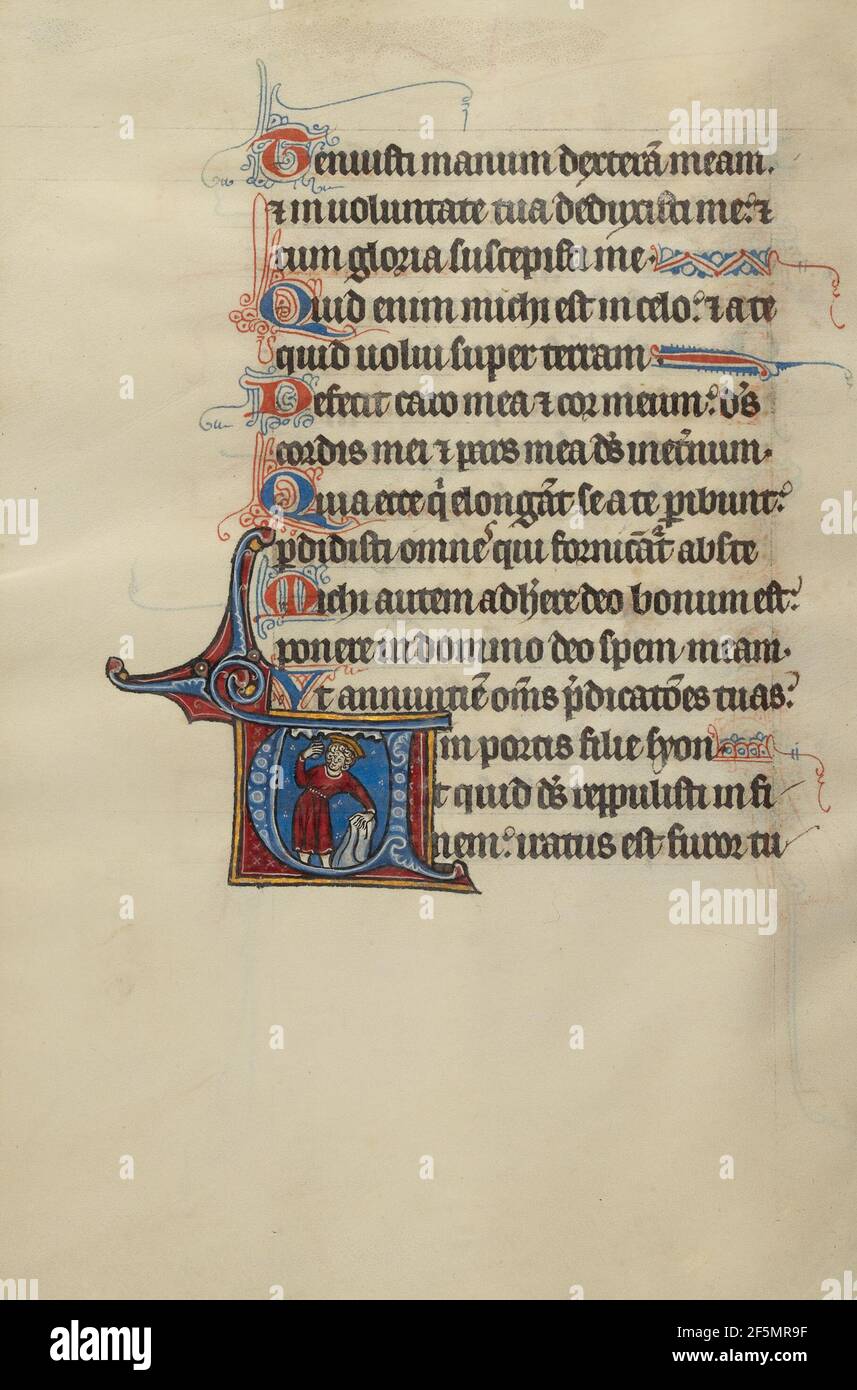 Tenuisti manum dexterā meam.
⁊ in uoluntate tua deduxisti me: ⁊
cum gloria suscepisti me.
Quid enim michi est in celo: ⁊ a te
quid uolui super terram
Defecit caro mea ⁊ cor meum: d̄s
cordis mei ⁊ pars mea d̄s in et̄num.
Quia ecce q̄ elongāt se a te p̱ibunt:
p̱didisti omneˢ qui fornicāt abs te
Michi autem adh̄ere deo bonum est:
ponere in domino deo spem meam.
Vt annuntiē om̄s p̄dicatōes tuas:
in portis filie syon
Ut quid d̄s reppulisti in fi
nem: iratus est furor tu
alamy
Image ID: 2F5MR9F
www.alamy.com